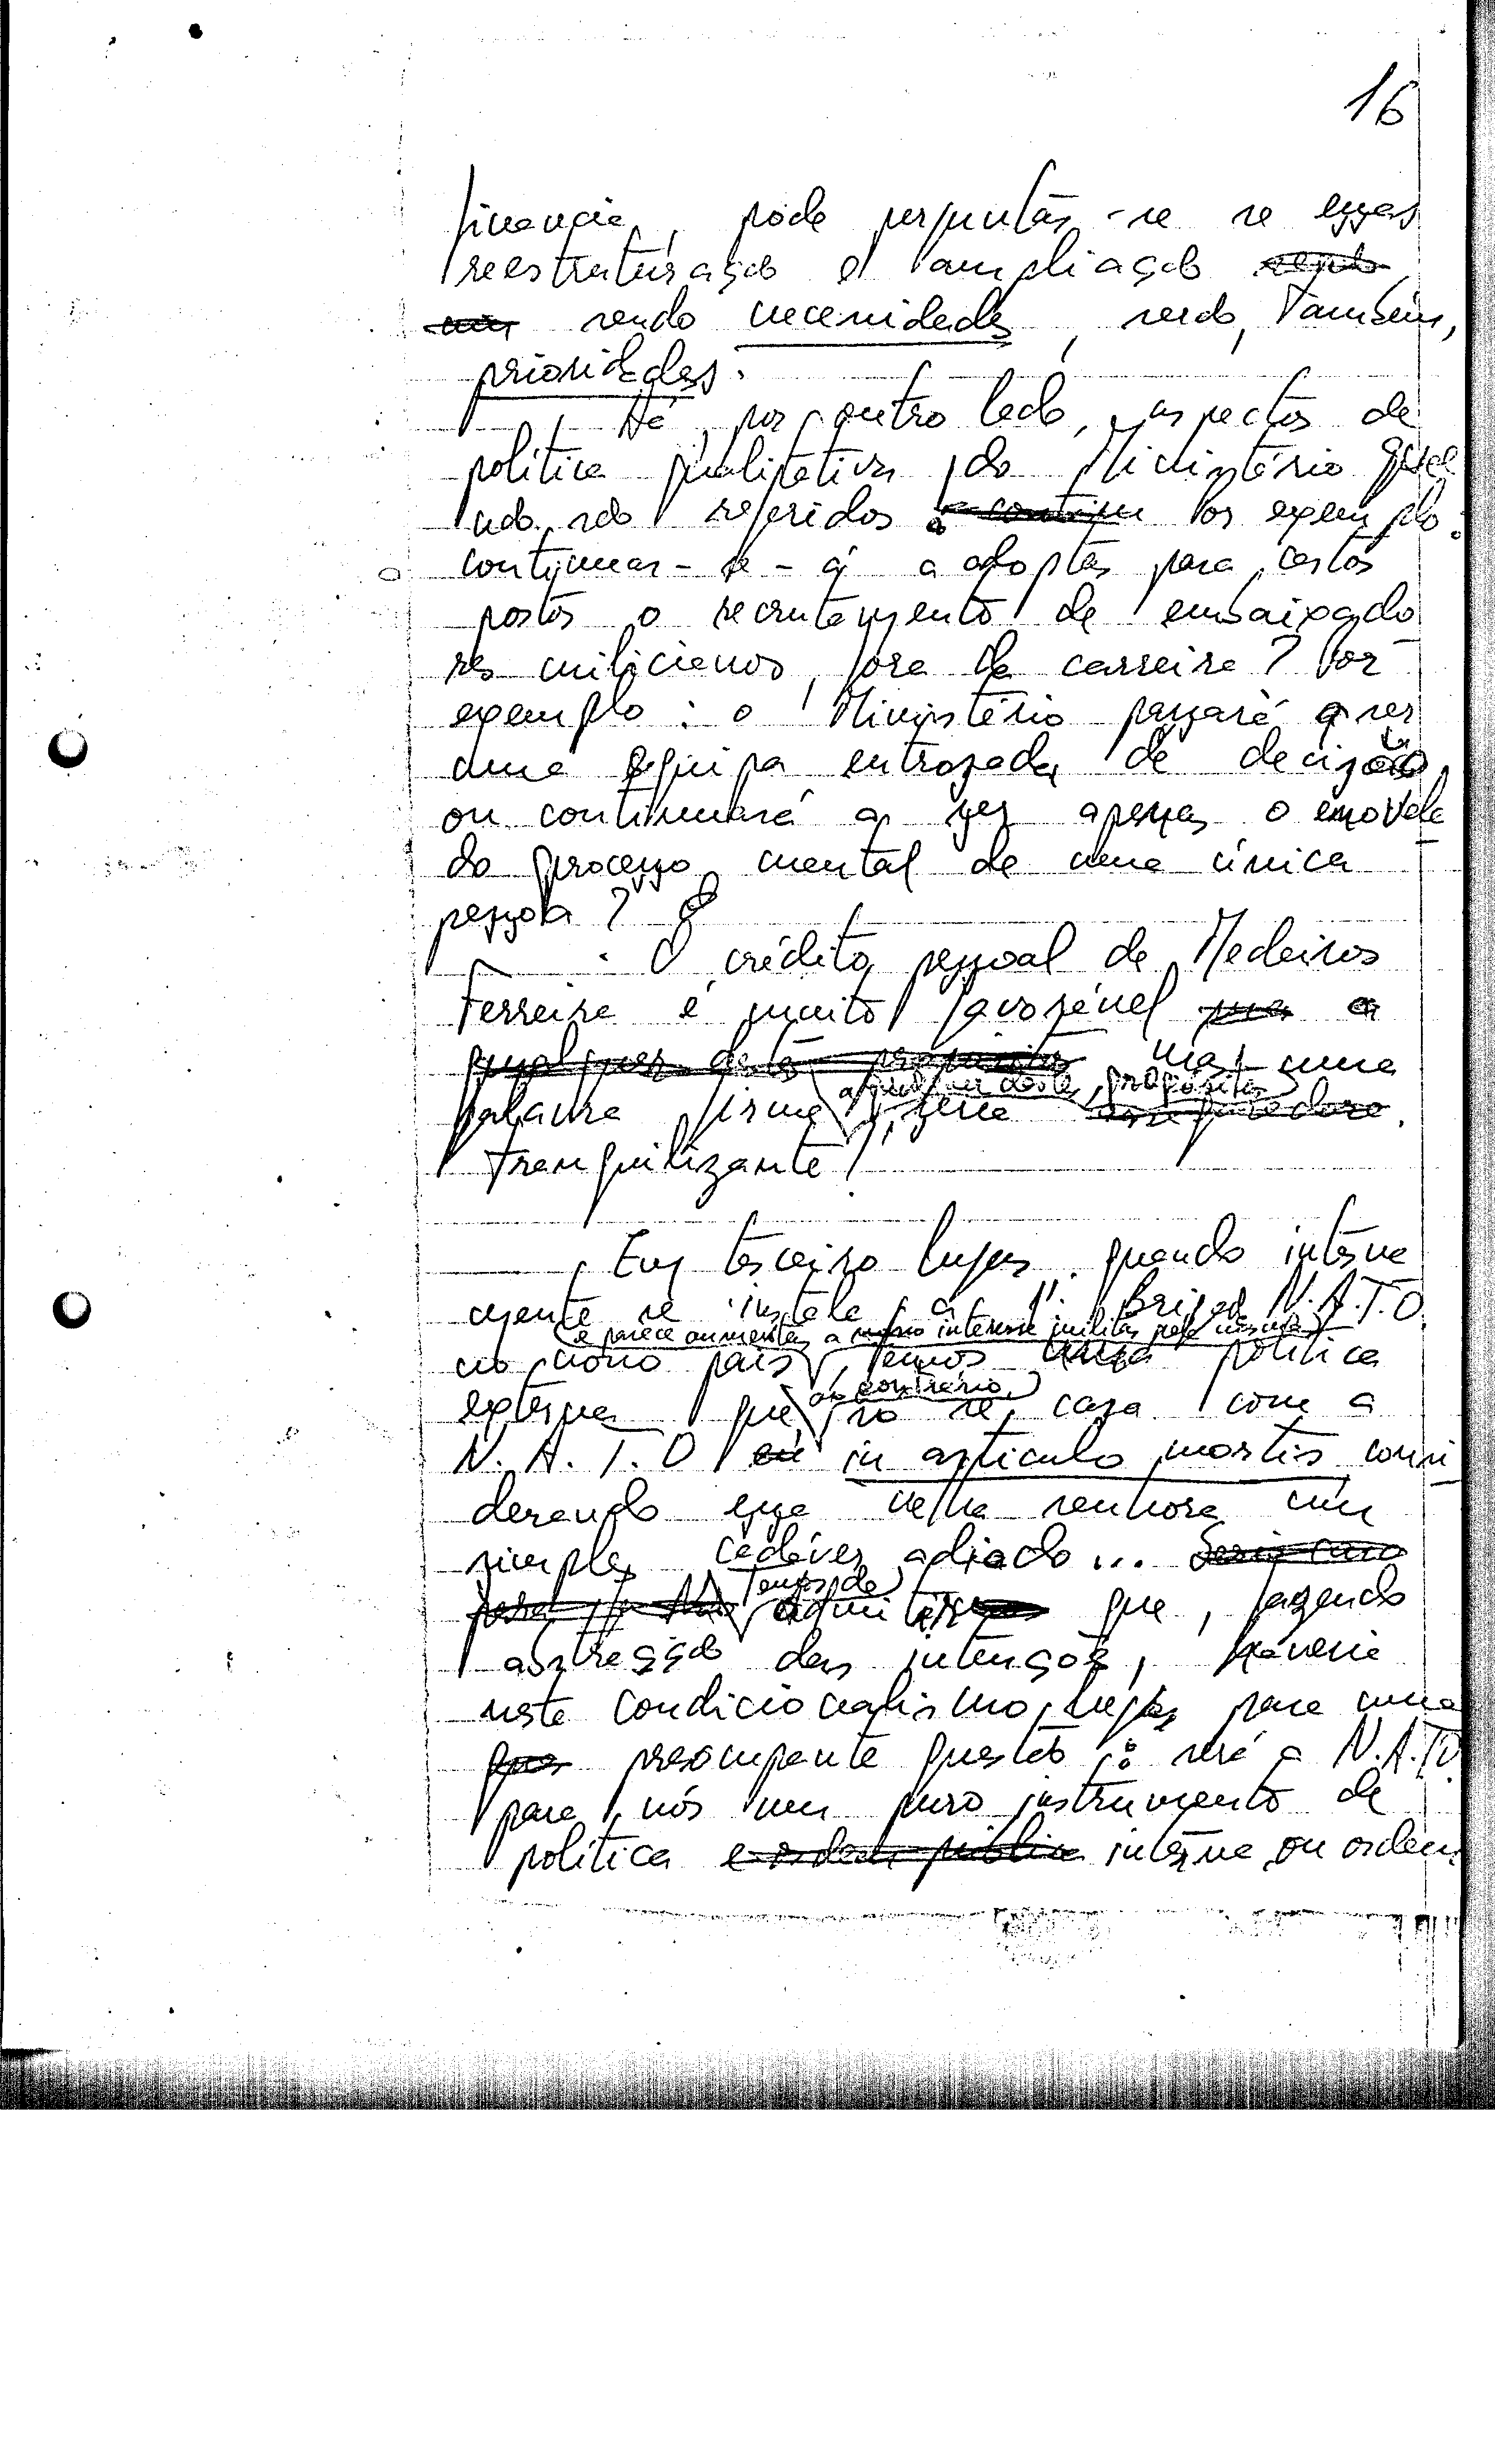 16
financia, pode perguntar-se se essas
reestruturação e ampliação
sendo necessidades, serão, também,
prioridades.
Há, por outro lado, aspectos de
política qualitativa do Ministério que
não são referidos os exemplo:
continuar-se-á a adoptar para certos
postos o recrutamento de embaixado
res milicianos, fora da carreira? Por
exemplo: o Ministério passará a ser
uma equipa entrozada de decisão
ou continuará a ser apenas o
do processo mental de uma única
pessoa?
O crédito pessoal de Medeiros
Ferreira é muito favorável a
mas uma
a qualquer destes propósitos
palavra firme seria
tranquilizante!
Em terceiro lugar: quando interna
mente se instala a 1ª. Brigada N.A.T.O
e parece aumentar o nosso interesse militar pela mesma
no nosso país, temos uma política
ao contrário
externa que só se casa com a
N.A.T.O in articulo mortis consi
derando essa velha senhora um
simples cadáver adiado...
Temos de
admitir que, fazendo
abstracção das intenções, haveria
neste condicionalismo lugar para uma
preocupante questão: será a N.A.T.O
para nós um puro instrumento de
política interna ou ordem